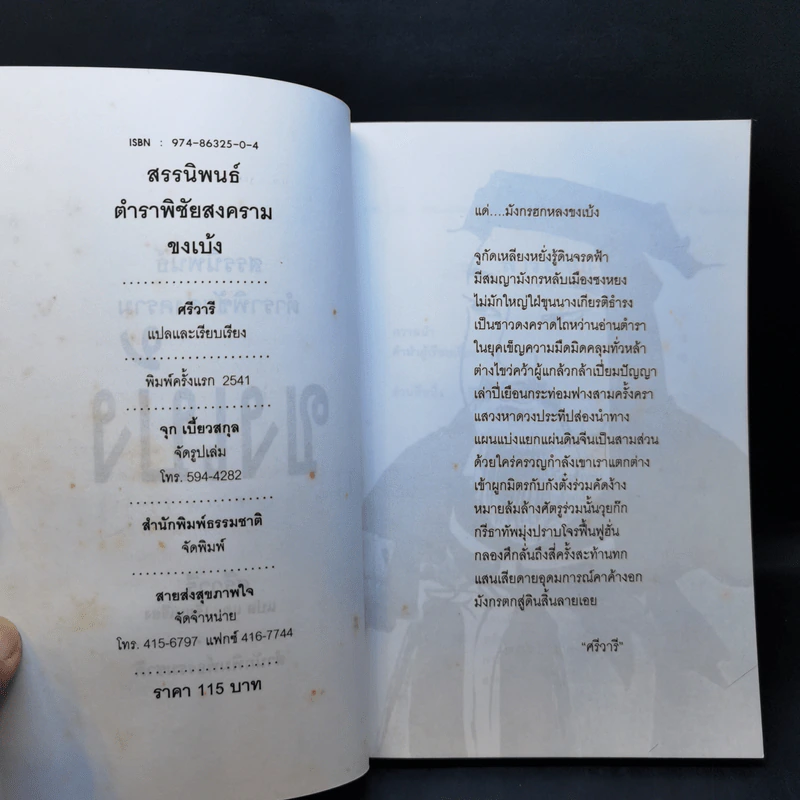 ISBN : 974-86325-0-4
สรรนิพนธ์
ตำราพิชัยสงคราม
ขงเบ้ง
ศรีวารี
แปลและเรียบเรียง
พิมพ์ครั้งแรก 2541
จุก เบี้ยวสกุล
จัดรูปเล่ม
โทร. 594-4282
สำนักพิมพ์ธรรมชาติ
จัดพิมพ์
สายส่งสุขภาพใจ
จัดจำหน่าย
โทร. 415-6797 แฟกซ์ 416-7744
ราคา 115 บาท
แด่....มังกรฮกหลงขงเบ้ง
จูกัดเหลียงหยั่งรู้ดินจรดฟ้า
มีสมญามังกรหลับเมืองซงหยง
ไม่มักใหญ่ใฝ่ขุนนางเกียรติธำรง
เป็นชาวดงคราดไถหว่านอ่านตำรา
ในยุคเข็ญความมืดมิดคลุมทั่วหล้า
ต่างไขว่คว้าผู้แกล้วกล้าเปี่ยมปัญญา
เล่าปี่เยือนกระท่อมฟางสามครั้งครา
แสวงหาดวงประทีปส่องนำทาง
แผนแบ่งแยกแผ่นดินจีนเป็นสามส่วน
ด้วยใคร่ครวญกำลังเขาเราแตกต่าง
เข้าผูกมิตรกับกังตั๋งร่วมคัดง้าง
หมายล้มล้างศัตรูร่วมนั้นวุยก๊ก
กรีธาทัพมุ่งปราบโจรฟื้นฟูฮั่น
กลองศึกลั่นถึงสี่ครั้งสะท้านทก
แสนเสียดายอุดมการณ์คาค้างอก
มังกรตกสู่ดินสิ้นลายเอย
"ศรีวารี"